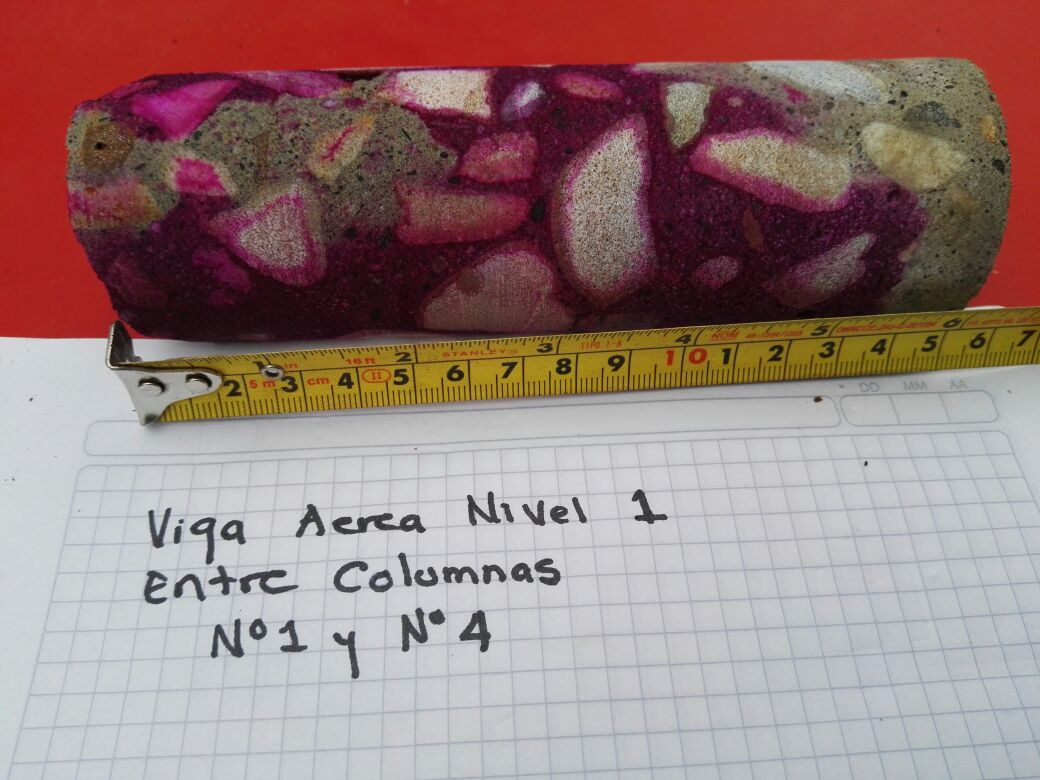 1 in 16 ft 2 STANLEY® 3 TIPO I-A 4 NOM 5 6
2 5 m 3 cm 4 II 5 6 7 8 9 10 1 2 3 4 5 6 7
DD MM AA
Viga Aerea Nivel 1
Entre Columnas
Nº1 y Nº 4